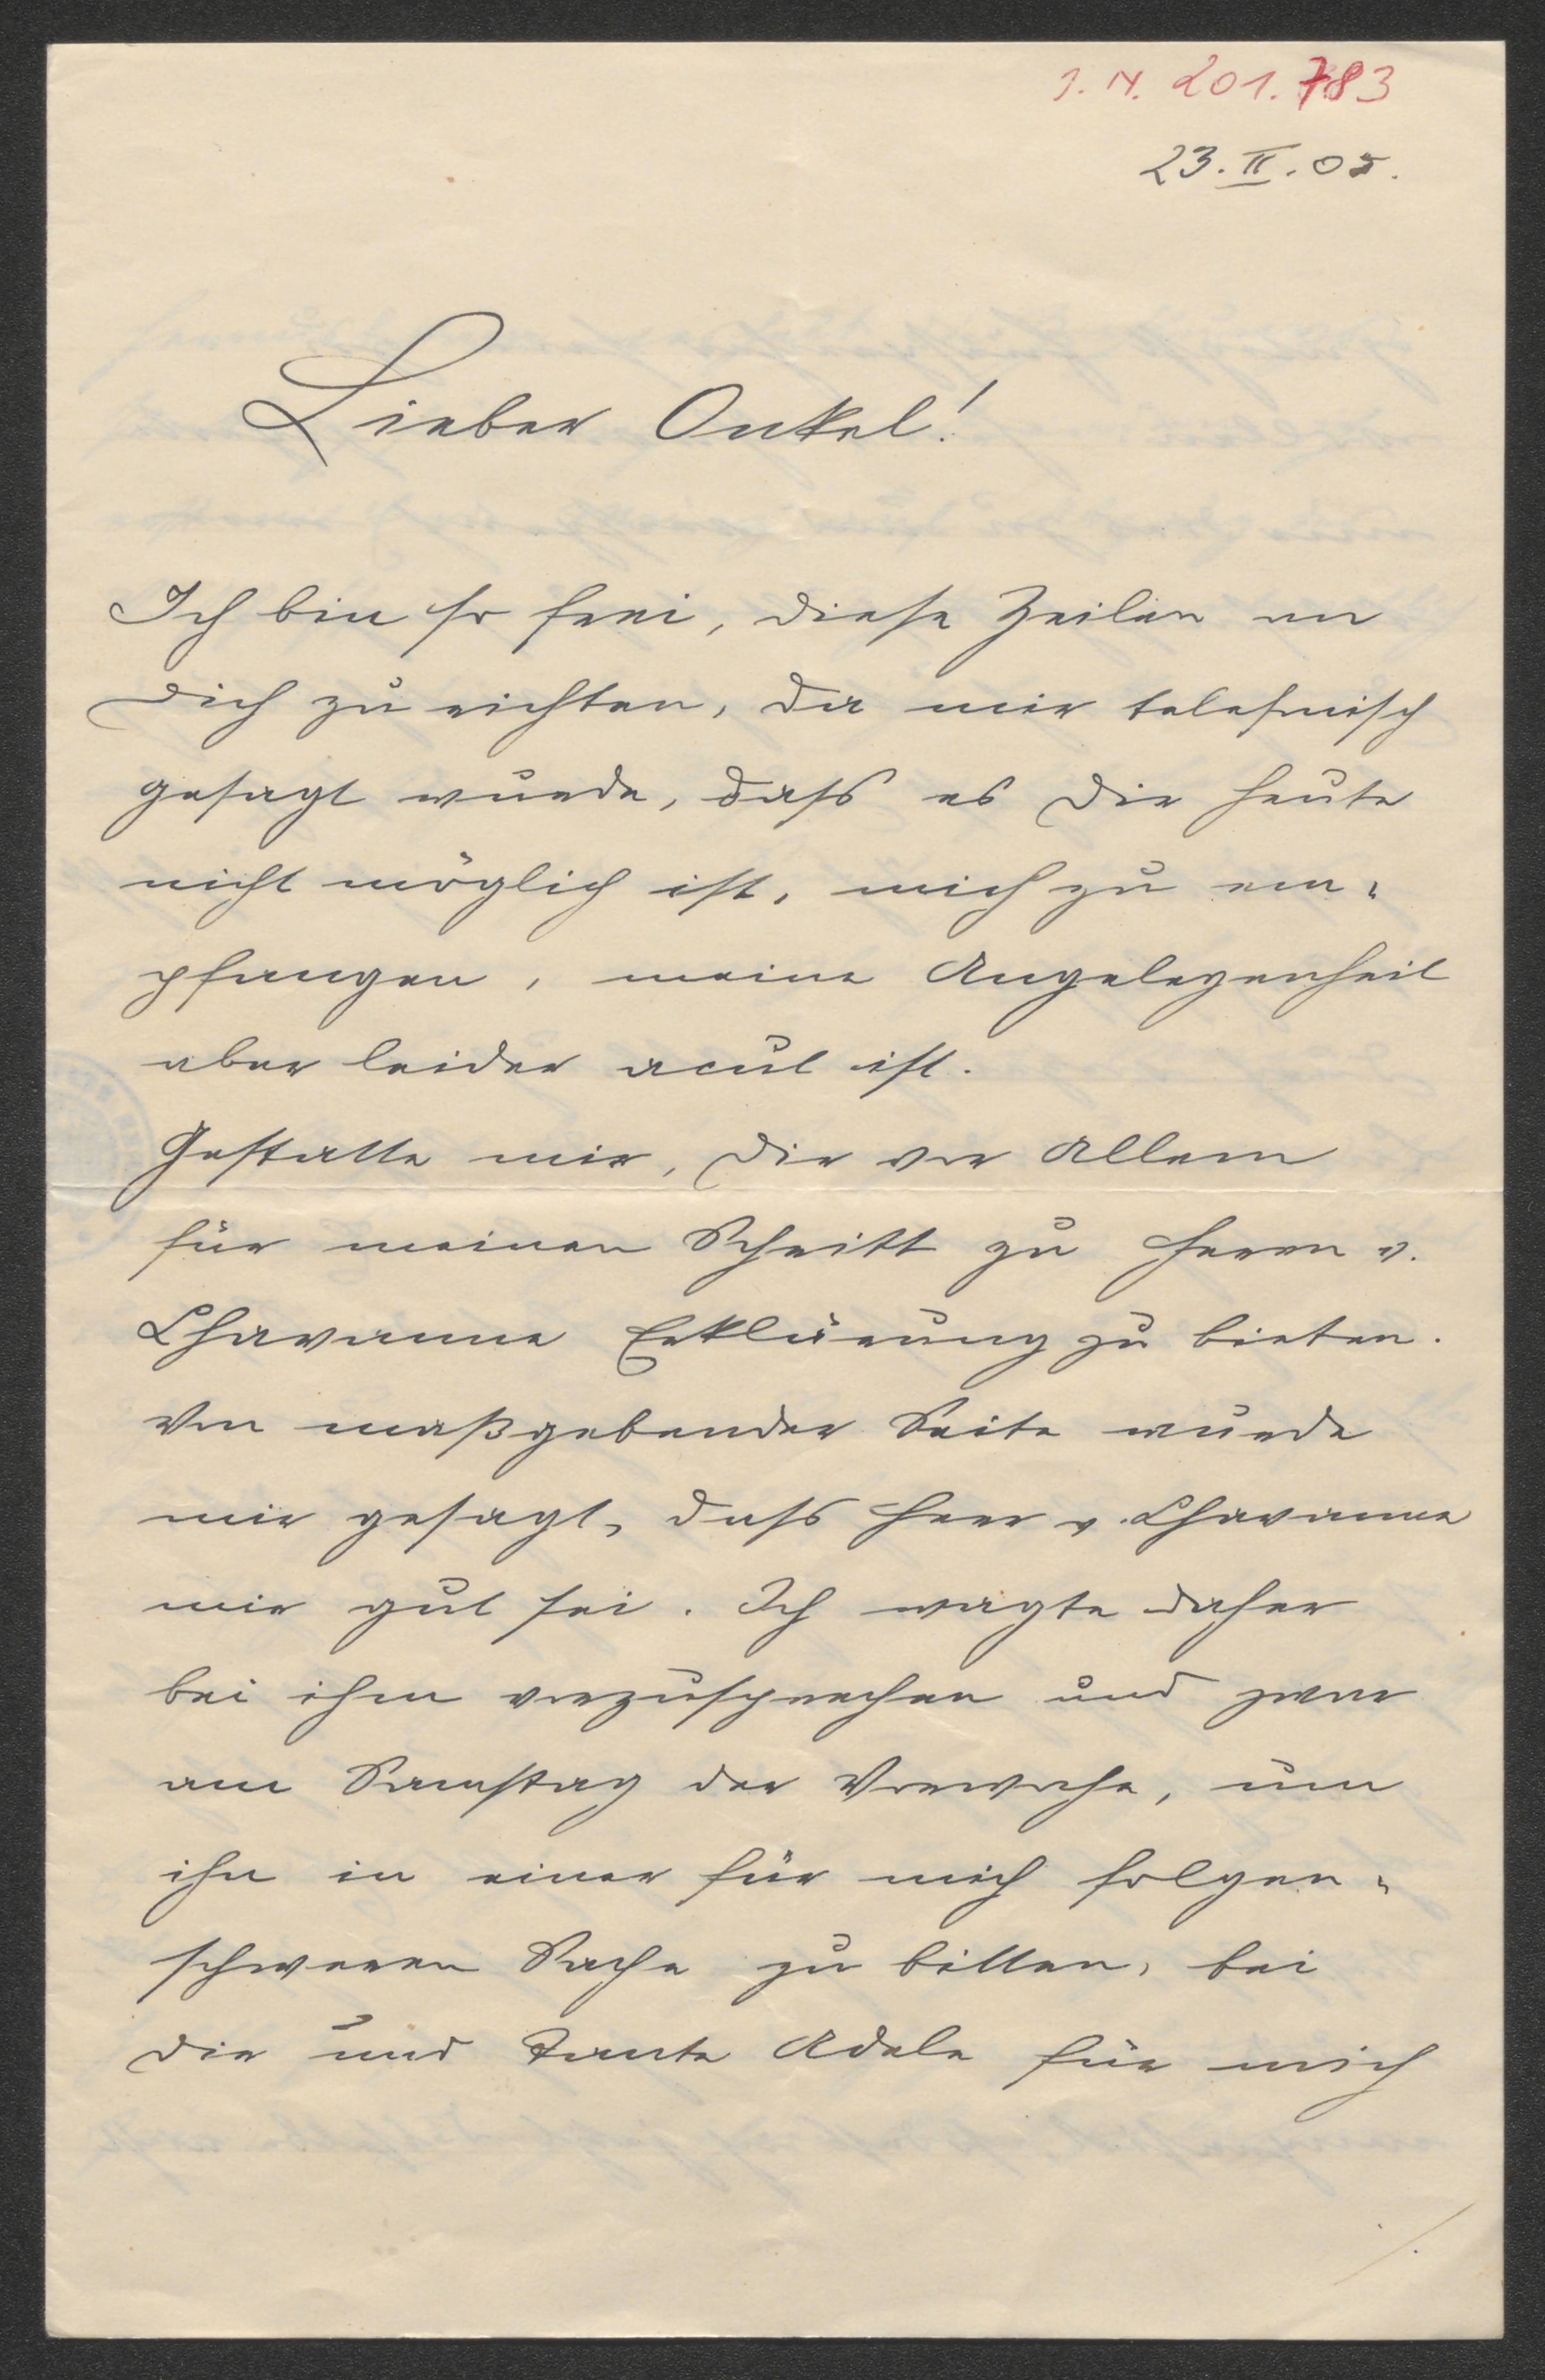 J. N. 201.783
23. II. 05.
Lieber Onkel!
Ich bin so frei, diese Zeilen an
Dich zu richten, da mir telefonisch
gesagt wurde, dass es Dir heute
nicht möglich ist, mich zu em-
pfangen, meine Angelegenheit
aber leider acut ist.
Gestatte mir, Dir vor Allem
für meinen Schritt zu Herrn v.
Chavanne Erklärung zu bieten.
Von maßgebender Seite wurde
mir gesagt, dass Herr v. Chavanne
mir gut sei. Ich wagte daher
bei ihm vorzusprechen und zwar
am Samstag der Vorwoche, um
ihn in einer für mich folgen-
schweren Sache zu bitten, bei
Dir und Tante Adele für mich
./.